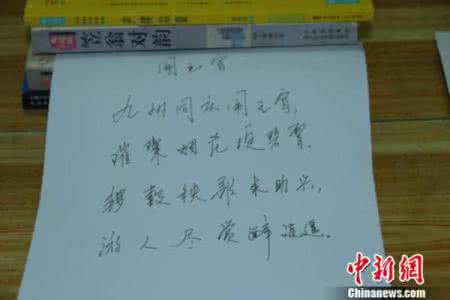 笠翁对韵
闹元宵
九州同庆闹元宵,
璀璨烟花
锣鼓秧歌来助兴,
游人尽赏醉逍遥。
中新网
Chinanews.com